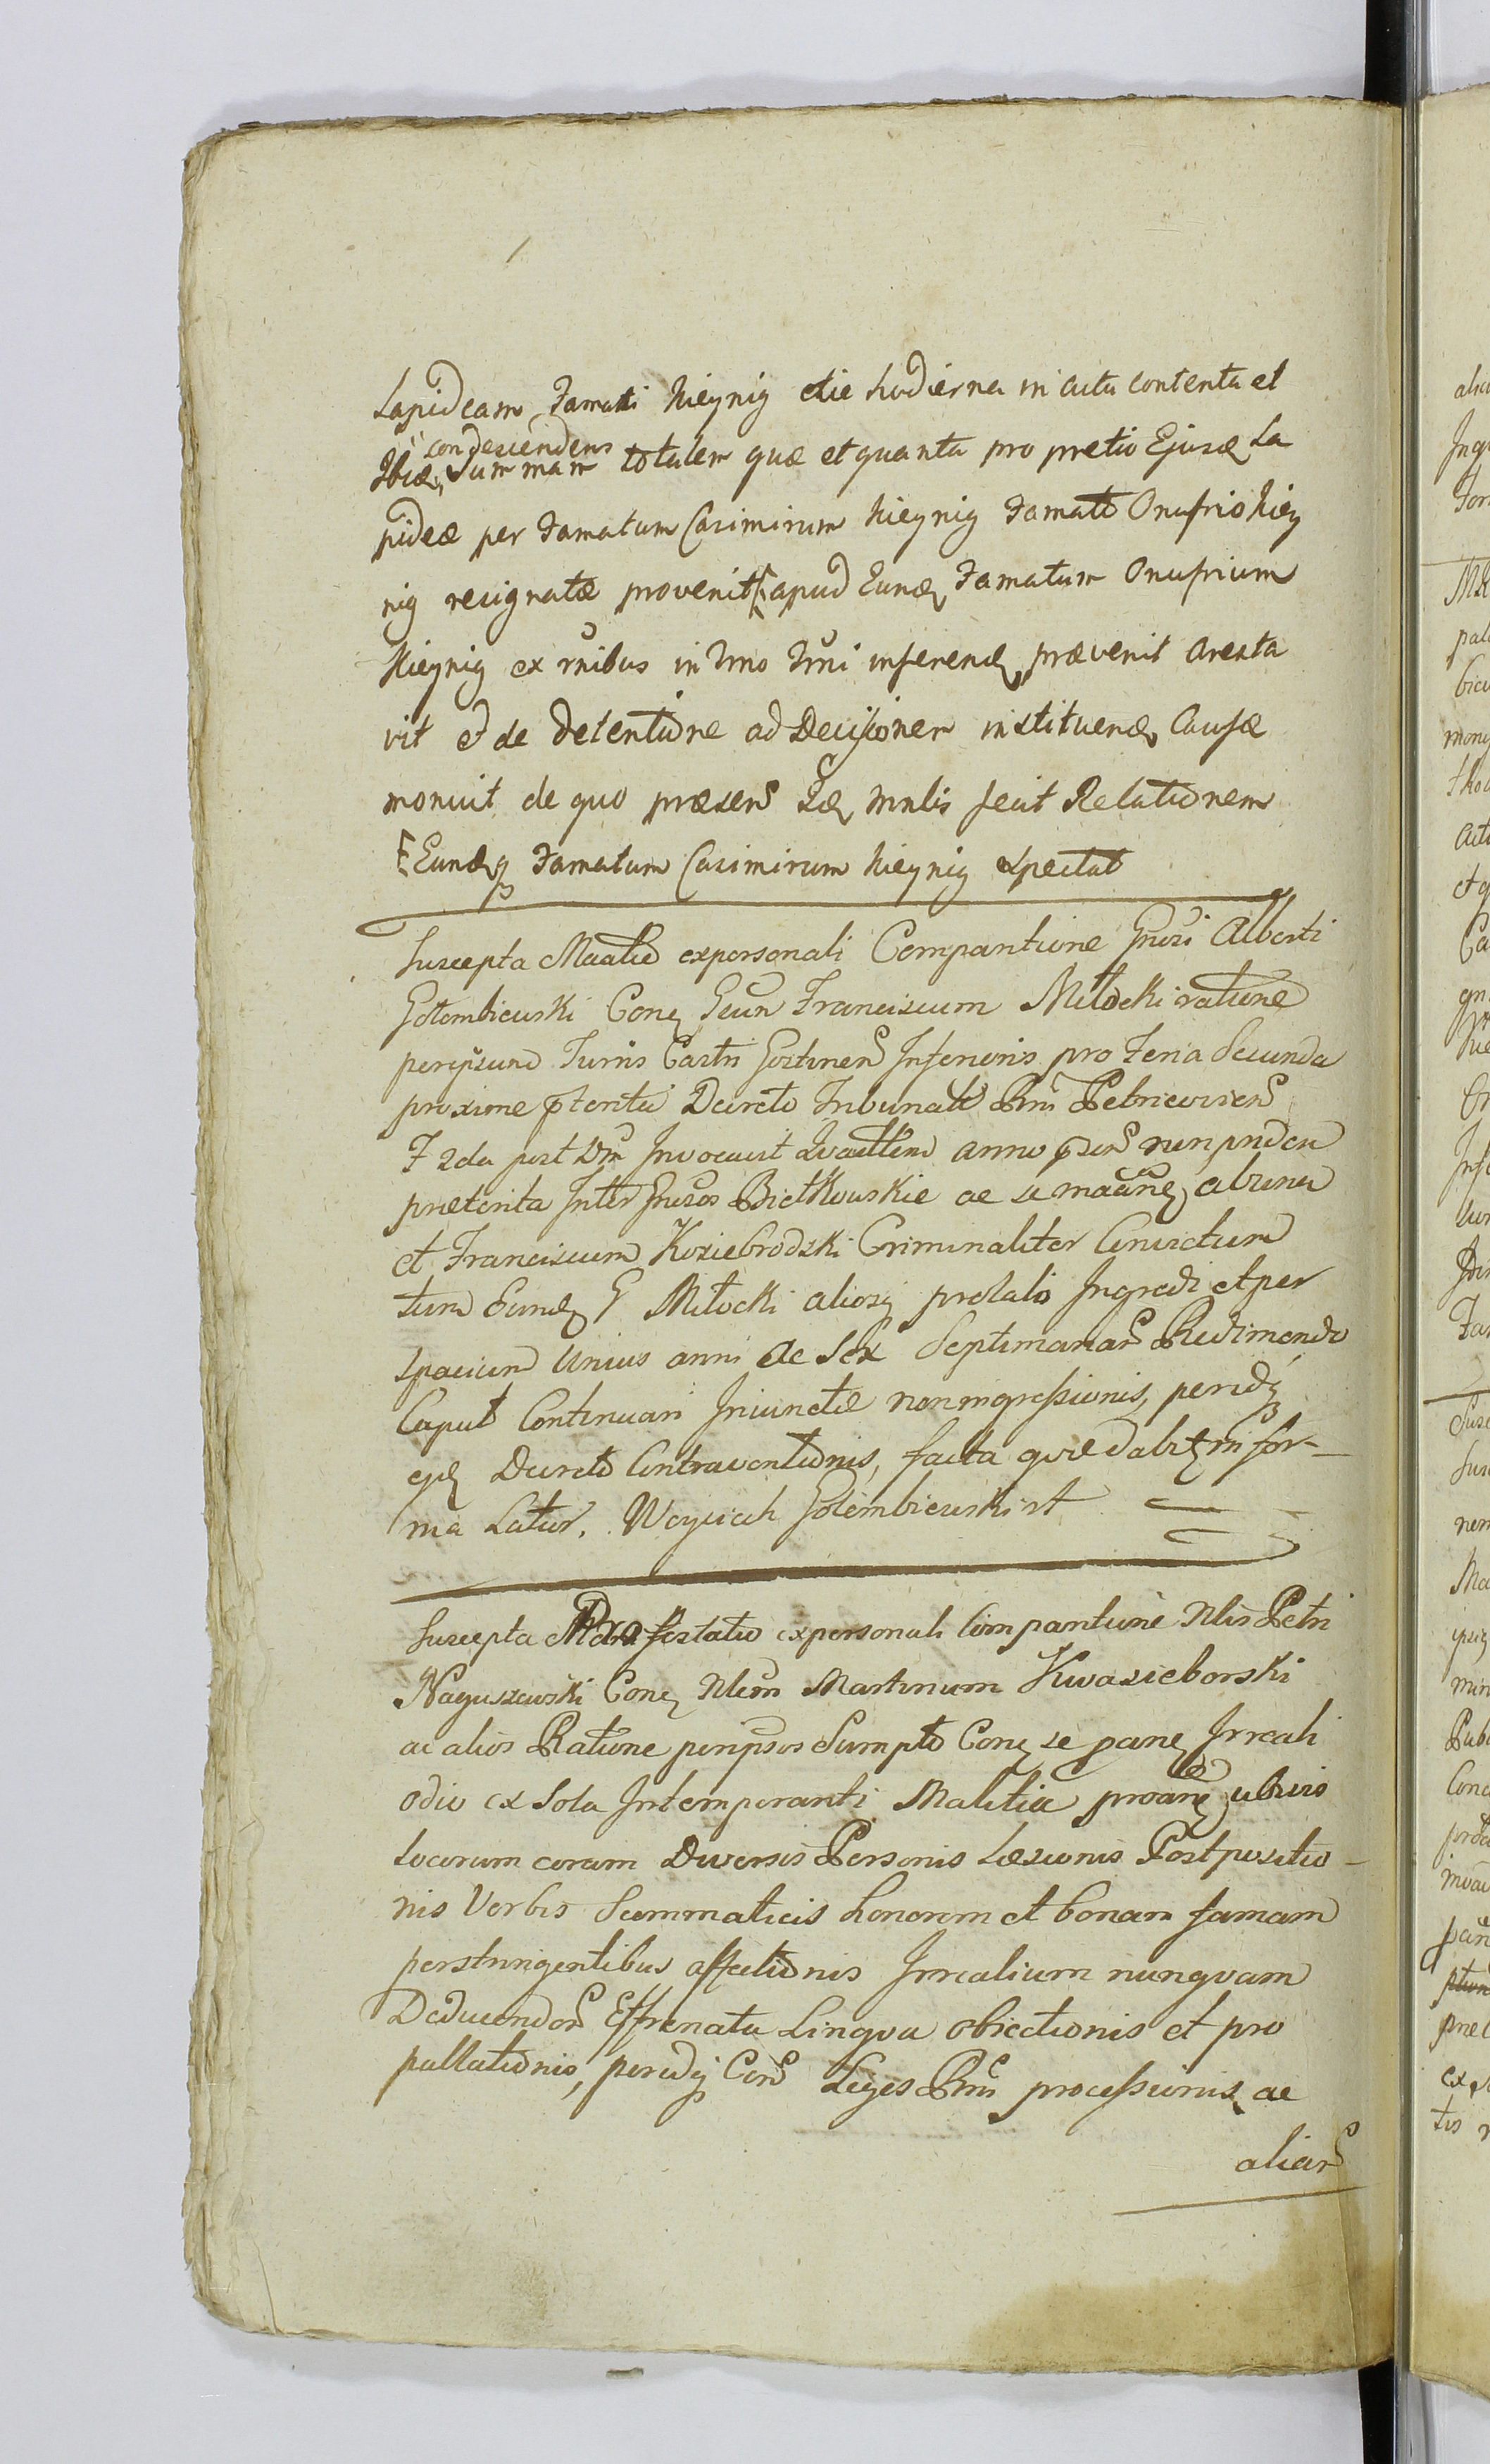 Lapideam Famati Kieynig die hodierna in acta contenta et
condescendens
Ibiq Summam totalem quæ et quanta pro pretio Ejusd La
pideæ per Famatum Casimirum Kieynig Famato Onufrio Kiey
nig resignatæ provenit apud Eund Famatum Onufrium
Kieynig ex rnibus in Tmo Tmi inferend prævenit aresta
vit et de detentione ad Decisionem instituend Causæ
monuit de quo præsens Mnlis fecit Relationem
Eundq Famatum Casimirum Kieynig spectat
Suscepta Maatio ex personali Comparitione Gnosi Alberti
Gołembiewski Con Gsum Franciscum Miłocki ratione
per ipsum Turris Castri Gostinen Inferioris pro Feria Secunda
proxime pterita Decreto Tribunali Petricovien
F 2da post Dm Invocavit anno non pridem
præterita Inter Gnosos Bietkowskie ac se ab una
et Franciscum Koziebrodzki Criminaliter Convictum
tum Eund G Miłocki aliosq prolato Ingredi et per
spacium Unius anni ac Sex Septimanar Redimendo
Caput Continuari Iniunctæ non ingressionis, peridq
ejd Decreti Contraventionis, facta in for-
ma Latior. Woyciech Gołembiewski st
Suscepta Mdra festatio ex personali Comparitione Nlis Petri
Naguszewski Con Nlem Martinum Kwasieborski
ac alios Ratione per ipsos Sumpto Con se Irreali
odio ex Sola Intemperanti Malitia ubivis
locorum coram Diversis Personis Læsionis Postpositio-
nis Verbis Summaticis honorem et bonam famam
perstringentibus affectionis Irrealium nunquam
Deducendor Effrenata Lingva obiectionis et pro
pallationis, peridq Con Leges processionis ac
aliar